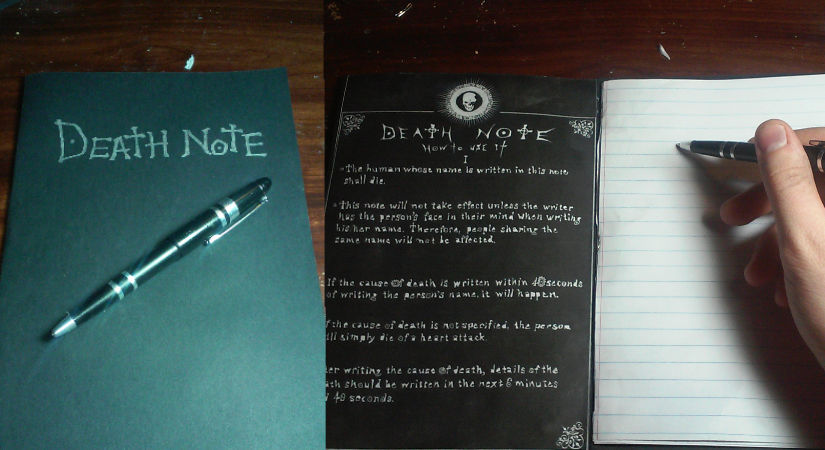 DEATH NOTE
DEATH NOTE
HOW TO USE IT
I
The human whose name is written in this note
shall die.
This note will not take effect unless the writer
has the person's face in their mind when writing
his/her name. Therefore, people sharing the
same name will not be affected.
If the cause of death is written within 40 seconds
of writing the person's name, it will happen.
f the cause of death is not specified, the person
ill simply die of a heart attack.
er writing the cause of death, details of the
ath should be written in the next 6 minutes
40 seconds.